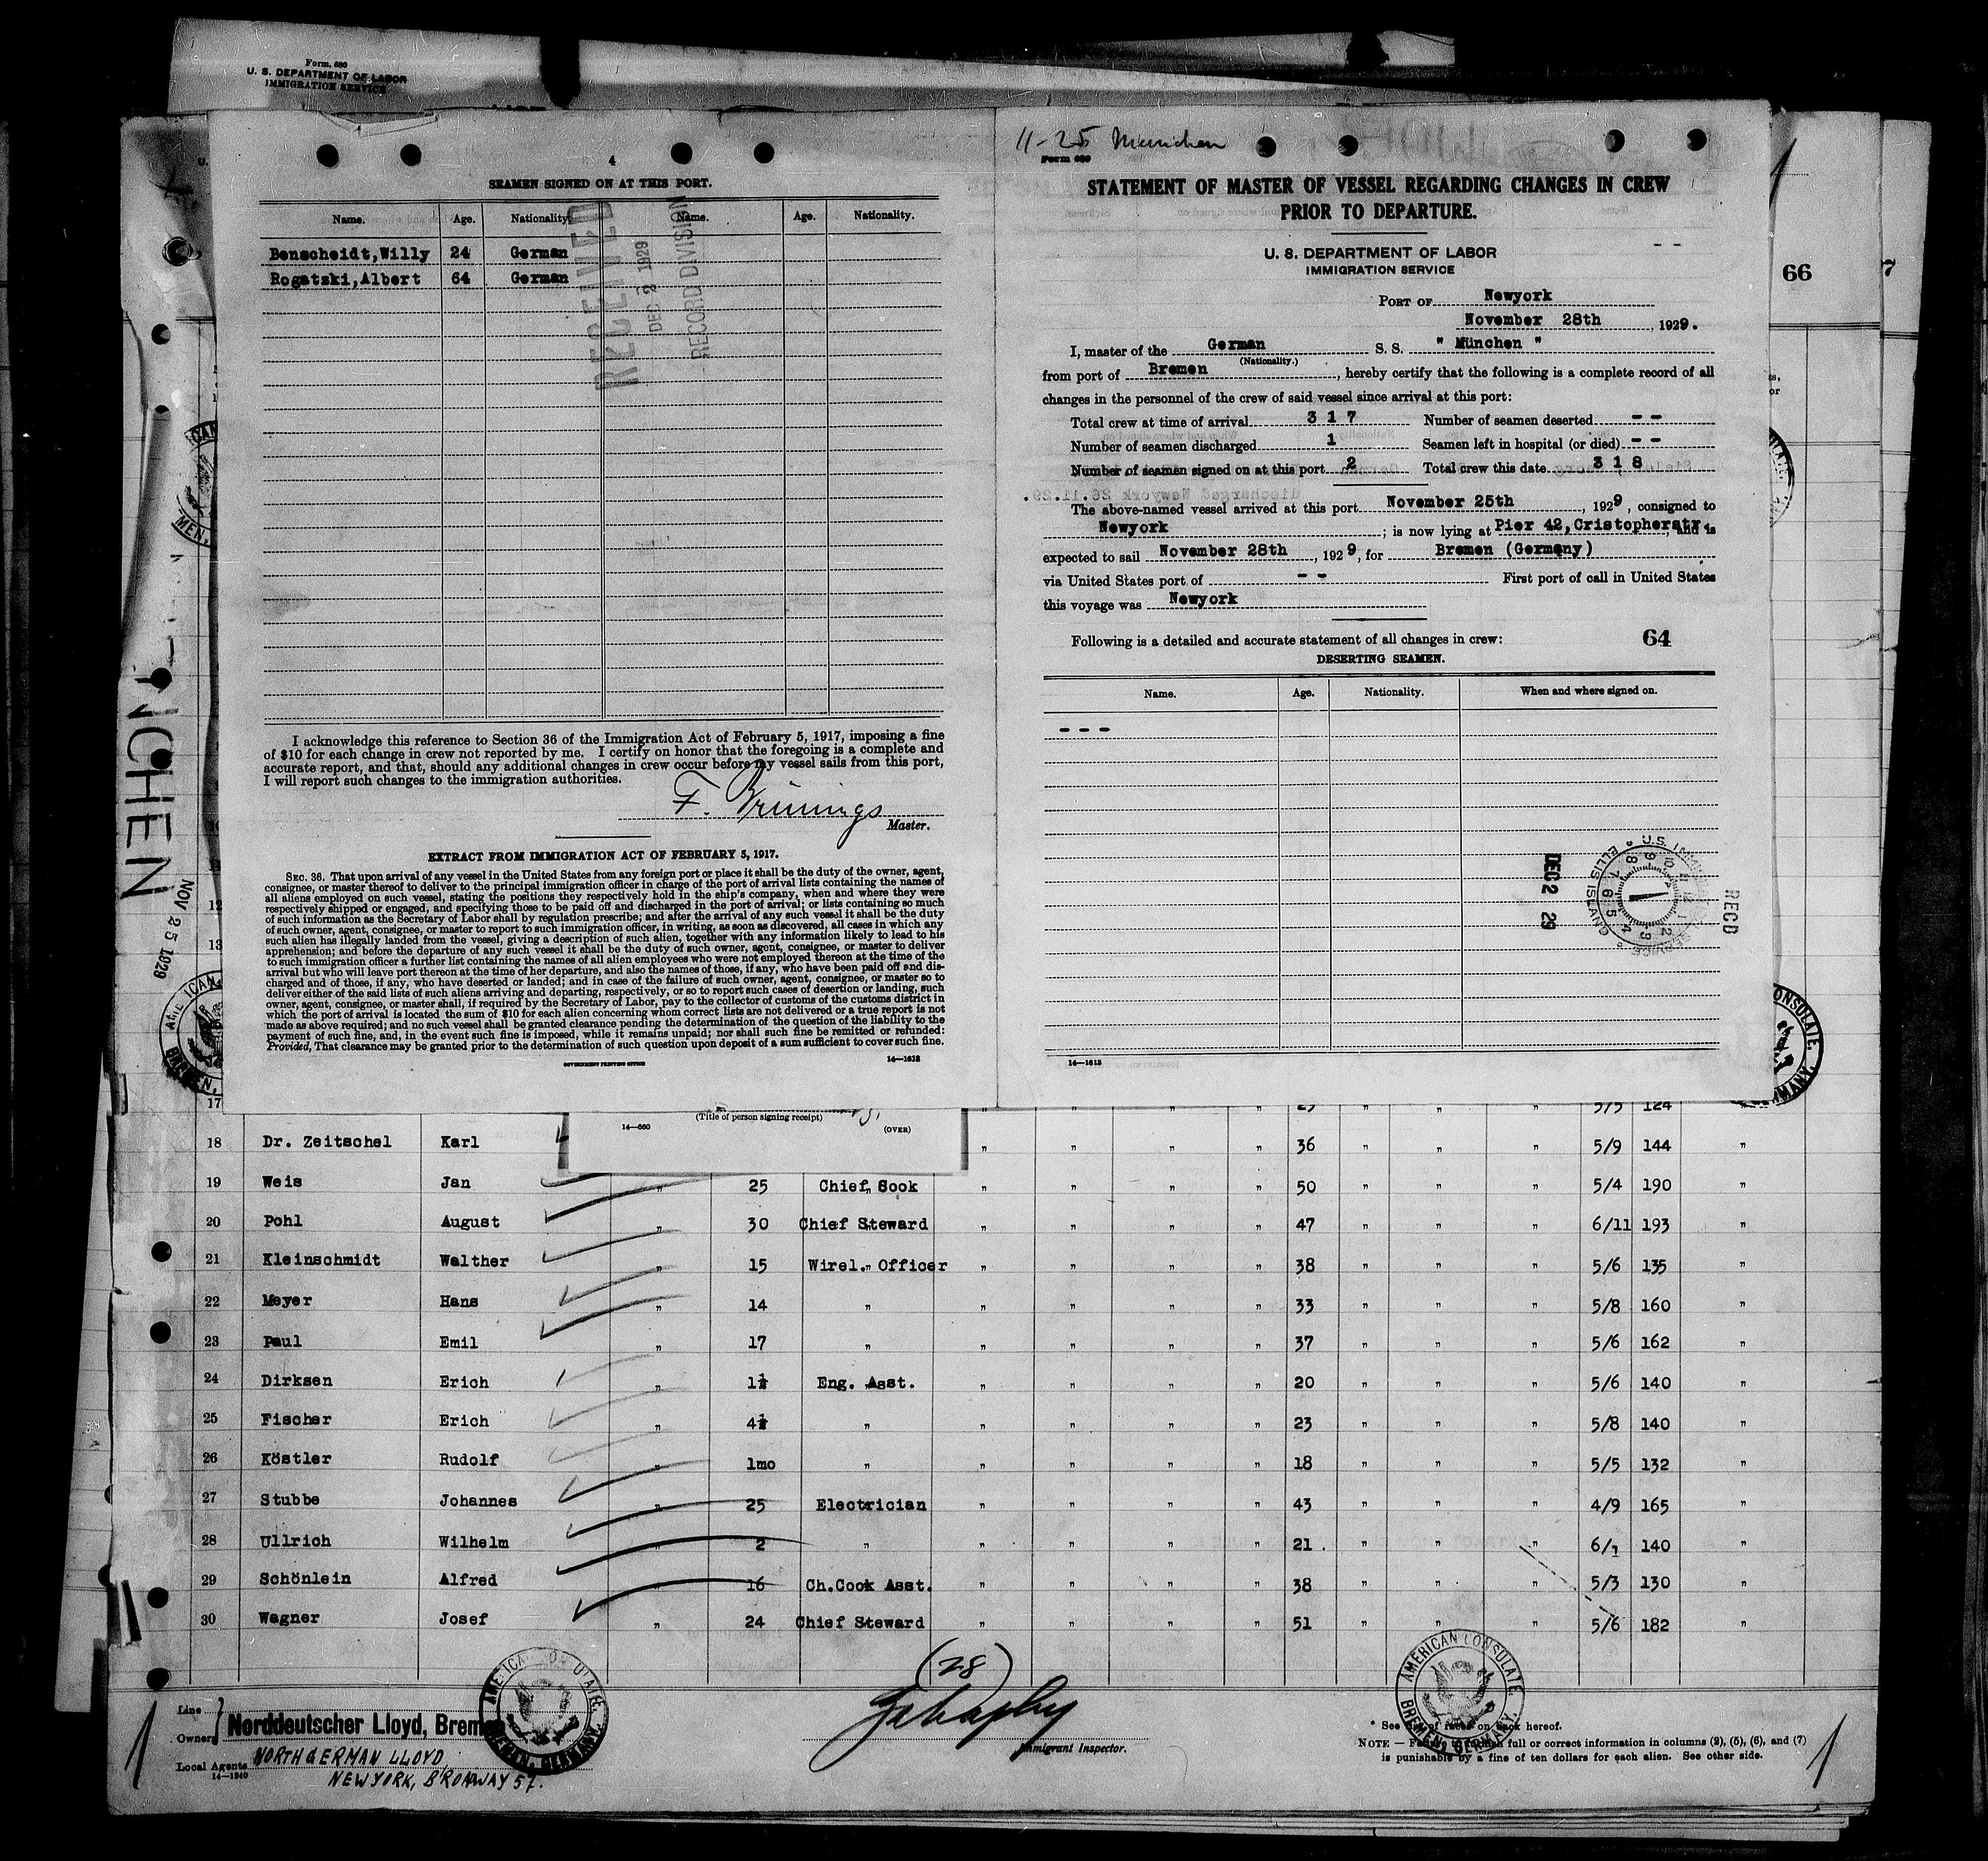 Form. 680
U. S. DEPARTMENT OF LABOR
IMMIGRATION SERVICE
4
SEAMEN SIGNED ON AT THIS PORT.
Name. Age. Nationality. Name. Age. Nationality.
Benscheidt,Willy 24 German
Rogatzki,Albert 64 German
RECEIVED
DEC 2 1929
RECORD DIVISION
I acknowledge this reference to Section 36 of the Immigration Act of February 5, 1917, imposing a fine
of $10 for each change in crew not reported by me. I certify on honor that the foregoing is a complete and
accurate report, and that, should any additional changes in crew occur before my vessel sails from this port,
I will report such changes to the immigration authorities.
F. Brünings
Master.
EXTRACT FROM IMMIGRATION ACT OF FEBRUARY 5, 1917.
SEC. 36. That upon arrival of any vessel in the United States from any foreign port or place it shall be the duty of the owner, agent,
consignee, or master thereof to deliver to the principal immigration officer in charge of the port of arrival lists containing the names of
all aliens employed on such vessel, stating the positions they respectively hold in the ship's company, when and where they were
respectively shipped or engaged, and specifying those to be paid off and discharged in the port of arrival; or lists containing so much
of such information as the Secretary of Labor shall by regulation prescribe; and after the arrival of any such vessel it shall be the duty
of such owner, agent, consignee, or master to report to such immigration officer, in writing, as soon as discovered, all cases in which any
such alien has illegally landed from the vessel, giving a description of such alien, together with any information likely to lead to his
apprehension; and before the departure of any such vessel it shall be the duty of such owner, agent, consignee, or master to deliver
to such immigration officer a further list containing the names of all alien employees who were not employed thereon at the time of the
arrival but who will leave port thereon at the time of her departure, and also the names of those, if any, who have been paid off and dis-
charged and of those, if any, who have deserted or landed; and in case of the failure of such owner, agent, consignee, or master so to
deliver either of the said lists of such aliens arriving and departing, respectively, or so to report such cases of desertion or landing, such
owner, agent, consignee, or master shall, if required by the Secretary of Labor, pay to the collector of customs of the customs district in
which the port of arrival is located the sum of $10 for each alien concerning whom correct lists are not delivered or a true report is not
made as above required; and no such vessel shall be granted clearance pending the determination of the question of the liability to the
payment of such fine, and, in the event such fine is imposed, while it remains unpaid; nor shall such fine be remitted or refunded:
Provided, That clearance may be granted prior to the determination of such question upon deposit of a sum sufficient to cover such fine.
GOVERNMENT PRINTING OFFICE 14—1618
11-25 München
Form 680
STATEMENT OF MASTER OF VESSEL REGARDING CHANGES IN CREW
PRIOR TO DEPARTURE.
U. S. DEPARTMENT OF LABOR
IMMIGRATION SERVICE
PORT OF Newyork
November 28th, 1929.
I, master of the German S. S. " München "
(Nationality.)
from port of Bremen, hereby certify that the following is a complete record of all
changes in the personnel of the crew of said vessel since arrival at this port:
Total crew at time of arrival 3 1 7 Number of seamen deserted - -
Number of seamen discharged 1 Seamen left in hospital (or died) - -
Number of seamen signed on at this port 2 Total crew this date 3 1 8
The above-named vessel arrived at this port November 25th, 1929, consigned to
Newyork; is now lying at Pier 42,Cristopherstr., and is
expected to sail November 28th, 1929, for Bremen (Germany)
via United States port of - - First port of call in United States
this voyage was Newyork
Following is a detailed and accurate statement of all changes in crew: 64
DESERTING SEAMEN.
Name. Age. Nationality. When and where signed on.
- - -
DEC 2 29
RECD
U.S. IMMI SERVICE ELLIS ISLAND
14—1618
66
7
NCHEN
NOV 25 1929
12
13
17 29 " " " 5/5 124
(Title of person signing receipt)
14—660 (OVER)
18 Dr. Zeitschel Karl " " " " 36 " " " 5/9 144 "
19 Weis Jan " 25 Chief Cook " " " " 50 " " " 5/4 190 "
20 Pohl August " 30 Chief Steward " " " " 47 " " " 6/11 193 "
21 Kleinschmidt Walther " 15 Wirel. Officer " " " " 38 " " " 5/6 135 "
22 Meyer Hans " 14 " " " " " 33 " " " 5/8 160 "
23 Paul Emil " 17 " " " " " 37 " " " 5/6 162 "
24 Dirksen Erich " 1½ Eng. Asst. " " " " 20 " " " 5/6 140 "
25 Fischer Erich " 4½ " " " " " 23 " " " 5/8 140 "
26 Köstler Rudolf " 1mo " " " " " 18 " " " 5/5 132 "
27 Stubbe Johannes " 25 Electrician " " " " 43 " " " 4/9 165 "
28 Ullrich Wilhelm " 2 " " " " " 21 " " " 6/1 140 "
29 Schönlein Alfred " 16 Ch.Cook Asst. " " " " 38 " " " 5/3 130 "
30 Wagner Josef " 24 Chief Steward " " " " 51 " " " 5/6 182 "
(28)
AMERICAN CONSULATE. BREMEN, GERMANY.
AMERICAN CONSULATE. BREMEN, GERMANY.
Line
Owners Norddeutscher Lloyd, Bremen
Local Agents NORTHGERMAN LLOYD,
14—1240 NEWYORK, BROADWAY 57.
Immigrant Inspector.
* See list of races on back hereof.
NOTE — Failure to furnish full or correct information in columns (2), (5), (6), and (7)
is punishable by a fine of ten dollars for each alien. See other side.